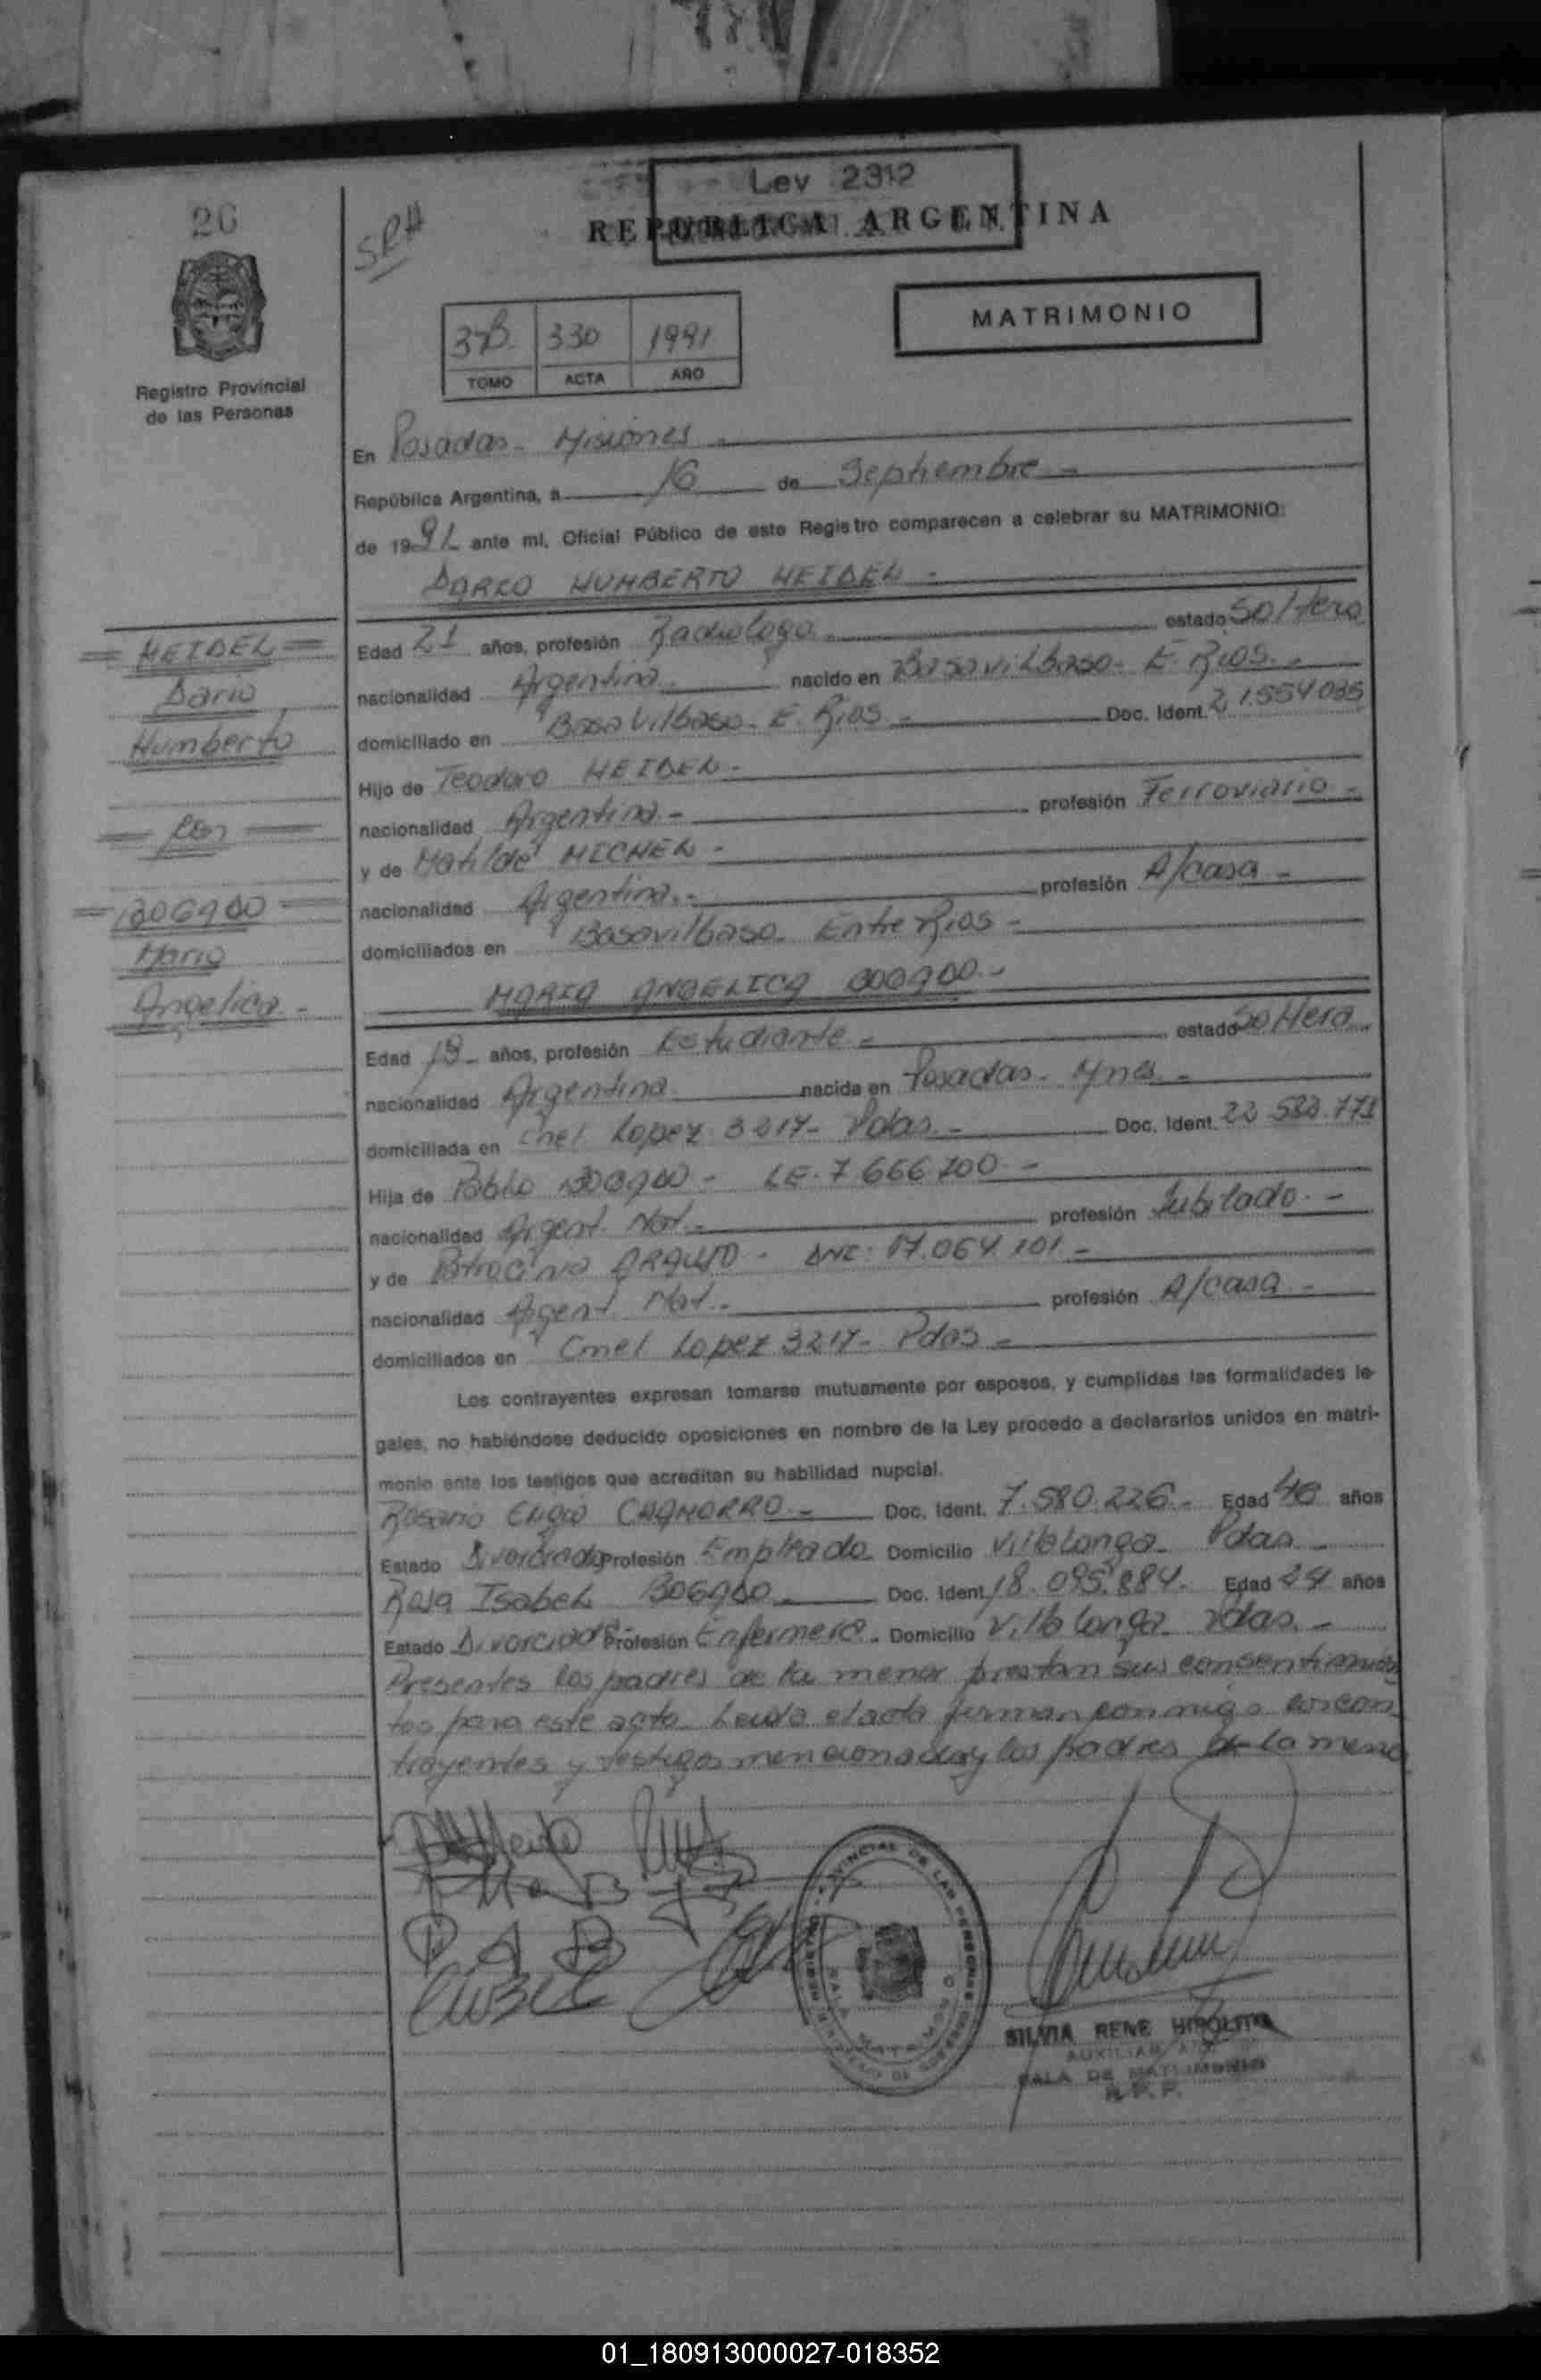 Ley 2312
REPUBLICA ARGENTINA
26
SRH
MATRIMONIO
3ºB 330 1991
TOMO ACTA AÑO
Registro Provincial
de las Personas
En Posadas - Misiones -
República Argentina, a 16 de Septiembre -
de 1991 ante mí, Oficial Público de este Registro comparecen a celebrar su MATRIMONIO:
DARIO HUMBERTO HEIDEL -
= HEIDEL =
Dario
Humberto
= con =
= BOGADO =
Maria
Angelica -
Edad 21 años, profesión Radiologo estado Soltero
nacionalidad Argentina nacido en Basavilbaso - E. Rios -
domiciliado en Basavilbaso - E. Rios - Doc. Ident. 21.554035
Hijo de Teodoro HEIDEL -
nacionalidad Argentina - profesión Ferroviario -
y de Matilde MICHEL -
nacionalidad Argentina - profesión A/casa -
domiciliados en Basavilbaso - Entre Rios -
MARIA ANGELICA BOGADO -
Edad 19 años, profesión Estudiante - estado Soltera
nacionalidad Argentina nacida en Posadas - Mnes -
domiciliada en Cnel Lopez 3217 - Pdas. - Doc. Ident. 22.582.771
Hija de Pablo BOGADO - LE. 7.666.700 -
nacionalidad Argent. Nat. - profesión Jubilado -
y de Patrocinia ARAUJO - DNI: 17.064.101 -
nacionalidad Argent. Nat. - profesión A/casa -
domiciliados en Cnel Lopez 3217 - Pdas -
Los contrayentes expresan tomarse mutuamente por esposos, y cumplidas las formalidades le-
gales, no habiéndose deducido oposiciones en nombre de la Ley procedo a declararlos unidos en matri-
monio ante los testigos que acreditan su habilidad nupcial.
Rosario Eligio CHAMORRO - Doc. Ident. 7.580.226 - Edad 46 años
Estado Divorciado Profesión Empleado Domicilio Villalonga - Pdas -
Rosa Isabel BOGADO - Doc. Ident. 18.095.884 - Edad 24 años
Estado Divorciada Profesión Enfermera - Domicilio Villalonga - Pdas. -
Presentes los padres de la menor prestan sus consentimien
tos para este acto. Leida el acta firman conmigo los con
trayentes y testigos mencionados y los padres de la menor
REGISTRO PROVINCIAL DE LAS PERSONAS
SALA MATRIMONIO
SILVIA RENE HIPOLITO
AUXILIAR
SALA DE MATRIMONIO
R. P. P.
01_180913000027-018352